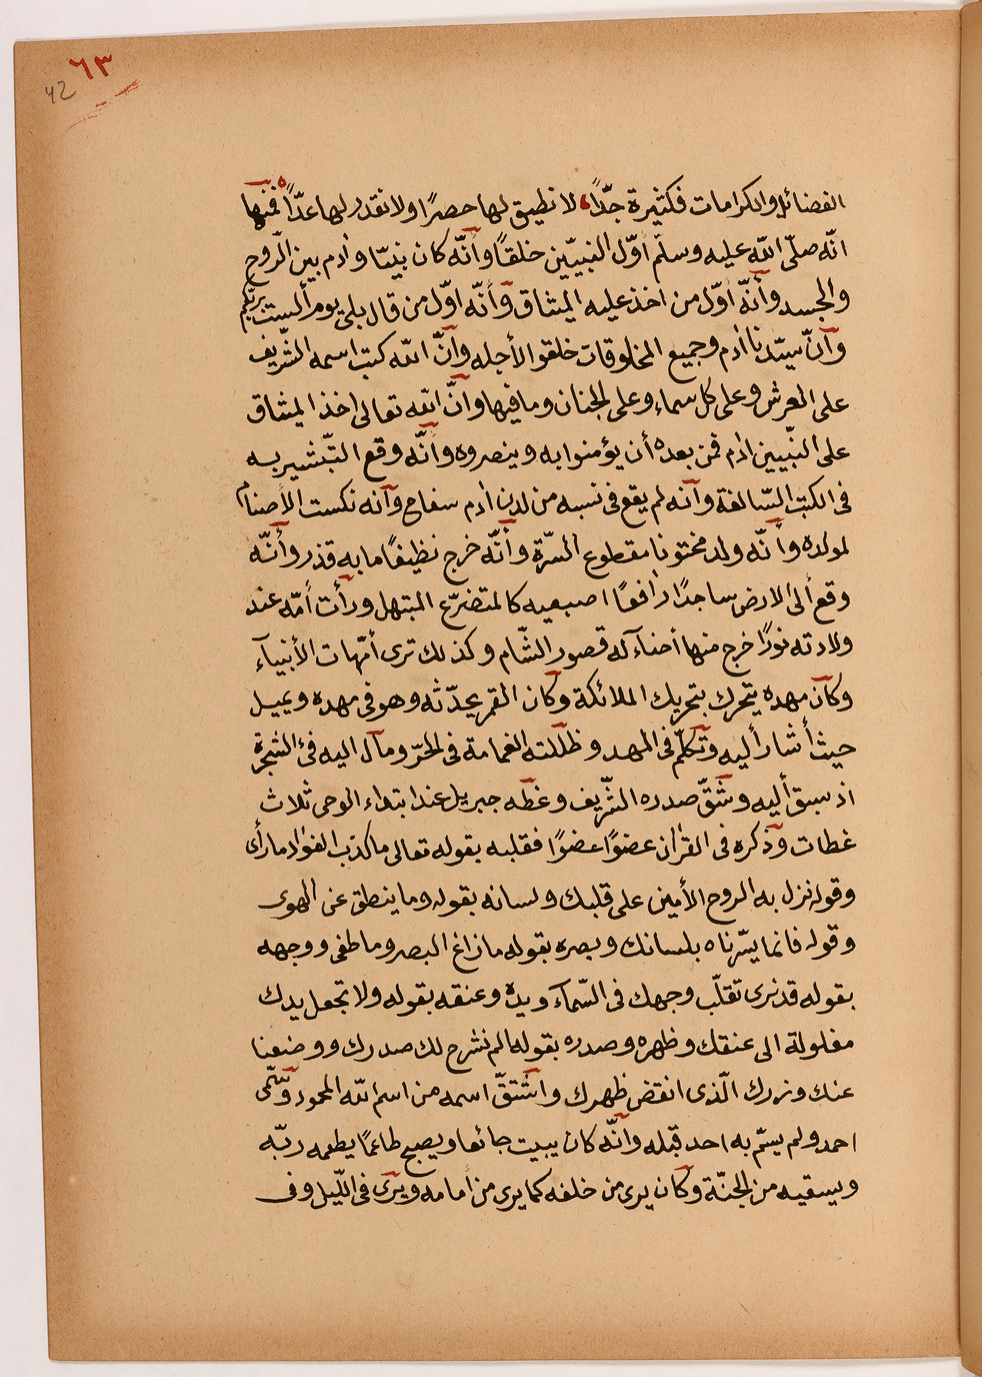 ٦٣
42
الفضائل والكرامات فكثيرة جدّاً، لا نطيق لها حصرًا ولا نقدر لها عدّاً فمنها
انّه صلّى الله عليه وسلّم اوّل النبيّين خلقًا وأنّه كان نبيّا وآدم بين الرّوح
والجسد وأنّه اوّل من اخذ عليه الميثاق وأنّه اوّل من قال بلى يوم ألست بربّكم
وأنّ سيّدنا آدم وجميع المخلوقات خلقوا لأجله وأنّ الله كتب اسمه الشّريف
على العرش وعلى كل سماء وعلى الجنان وما فيها وأنّ الله تعالى اخذ الميثاق
على النّبيين آدم فمن بعده أن يؤمنوا به وينصروه وأنّه وقع التّبشير به
فى الكتب السّالفة وأنه لم يقع فى نسبه من لدن آدم سفاح وأنه نكست الأصنام
لمولده وأنّه ولد مختونا مقطوع السّرّة وأنّه خرج نظيفًا ما به قذر وأنّه
وقع ألى الارض ساجدًا رافعًا اصبعيه كالمتضرّع المبتهل ورأت أمّه عند
ولادته نورًا خرج منها أضاء له قصور الشّام وكذلك ترى أمّهات الأنبيآء
وكان مهده يتحرك بتحريك الملائكة وكان القمر يحدّثه وهو فى مهده ويميل
حيث أشار أليه وتكلّم فى المهد وظلّلته الغمامة فى الحرّ ومال اليه فئ الشجرة
اذ سبق أليه وشقّ صدره الشّريف وغطّه جبريل عند ابتداء الوحى ثلاث
غطات وذكره فى القرآن عضوًا عضوًا فقلبه بقوله تعالى ما كذب الفؤاد ما رأى
وقوله نزل به الروح الأمين على قلبك ولسانه بقوله وما ينطق عن الهوى
وقوله فانما يسّرناه بلسانك وبصره بقوله ما زاغ البصر وما طغى ووجهه
بقوله قد نرى تقلّب وجهك فى السّمآء ويده وعنقه بقوله ولا تجعل يدك
مغلولة الى عنقك وظهره وصدره بقوله الم نشرح لك صدرك ووضعنا
عنك وزرك الّذى انقض ظهرك واشتقّ اسمه من اسم الله المحمود وسمّى
احمد ولم يسمّ به احد قبله وأنّه كان يبيت جائعا ويصبح طاعمًا يطعمه ربّه
ويسقيه من الجنّة وكان يرى من خلفه كما يرى من أمامه ويرى فى اللّيل وفى